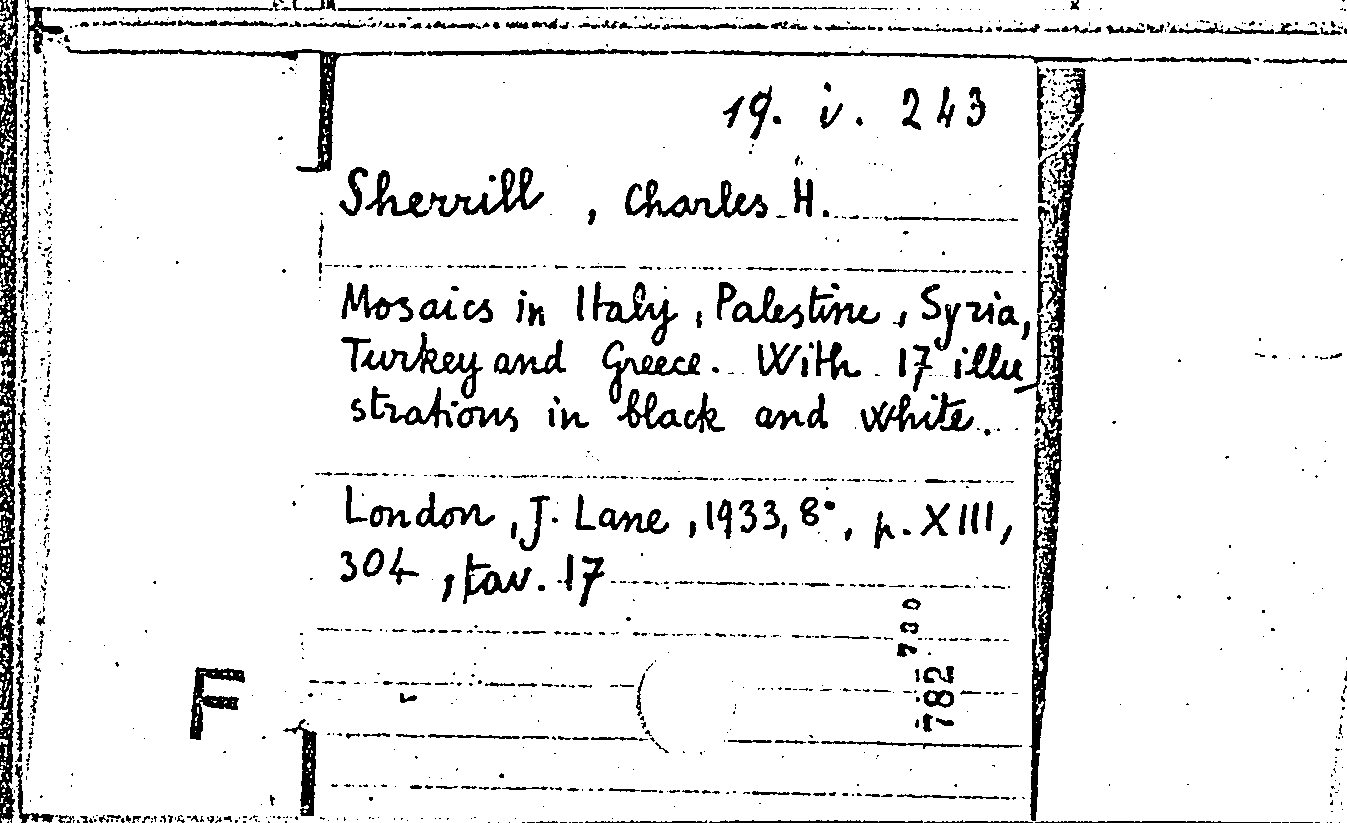 19. i. 243
Sherrill, Charles H.
Mosaics in Italy, Palestine, Syria,
Turkey and Greece. With 17 illu
strations in black and white.
London, J. Lane, 1933, 8°, p. XIII,
304, tav. 17
730
782
F